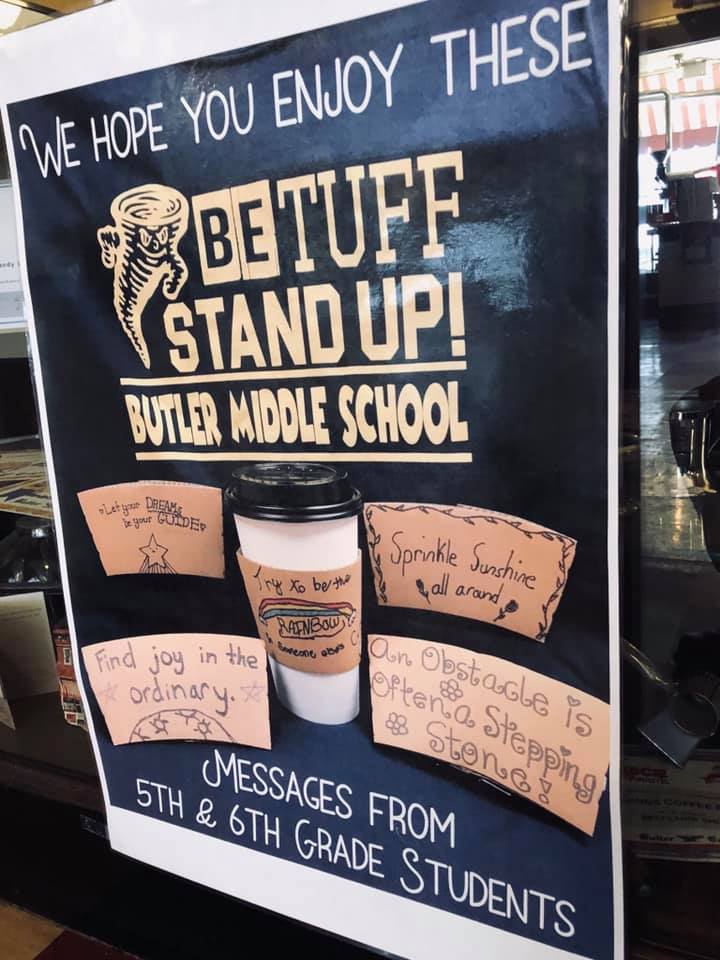 WE HOPE YOU ENJOY THESE
BE TUFF
STAND UP!
BUTLER MIDDLE SCHOOL
Let your DREAMS
be your GUIDE
Sprinkle Sunshine
all around
Try to be the
RAINBOW
in someone else's
Find joy in the
ordinary.
An Obstacle is
Often a Stepping
Stone!
MESSAGES FROM
5TH & 6TH GRADE STUDENTS